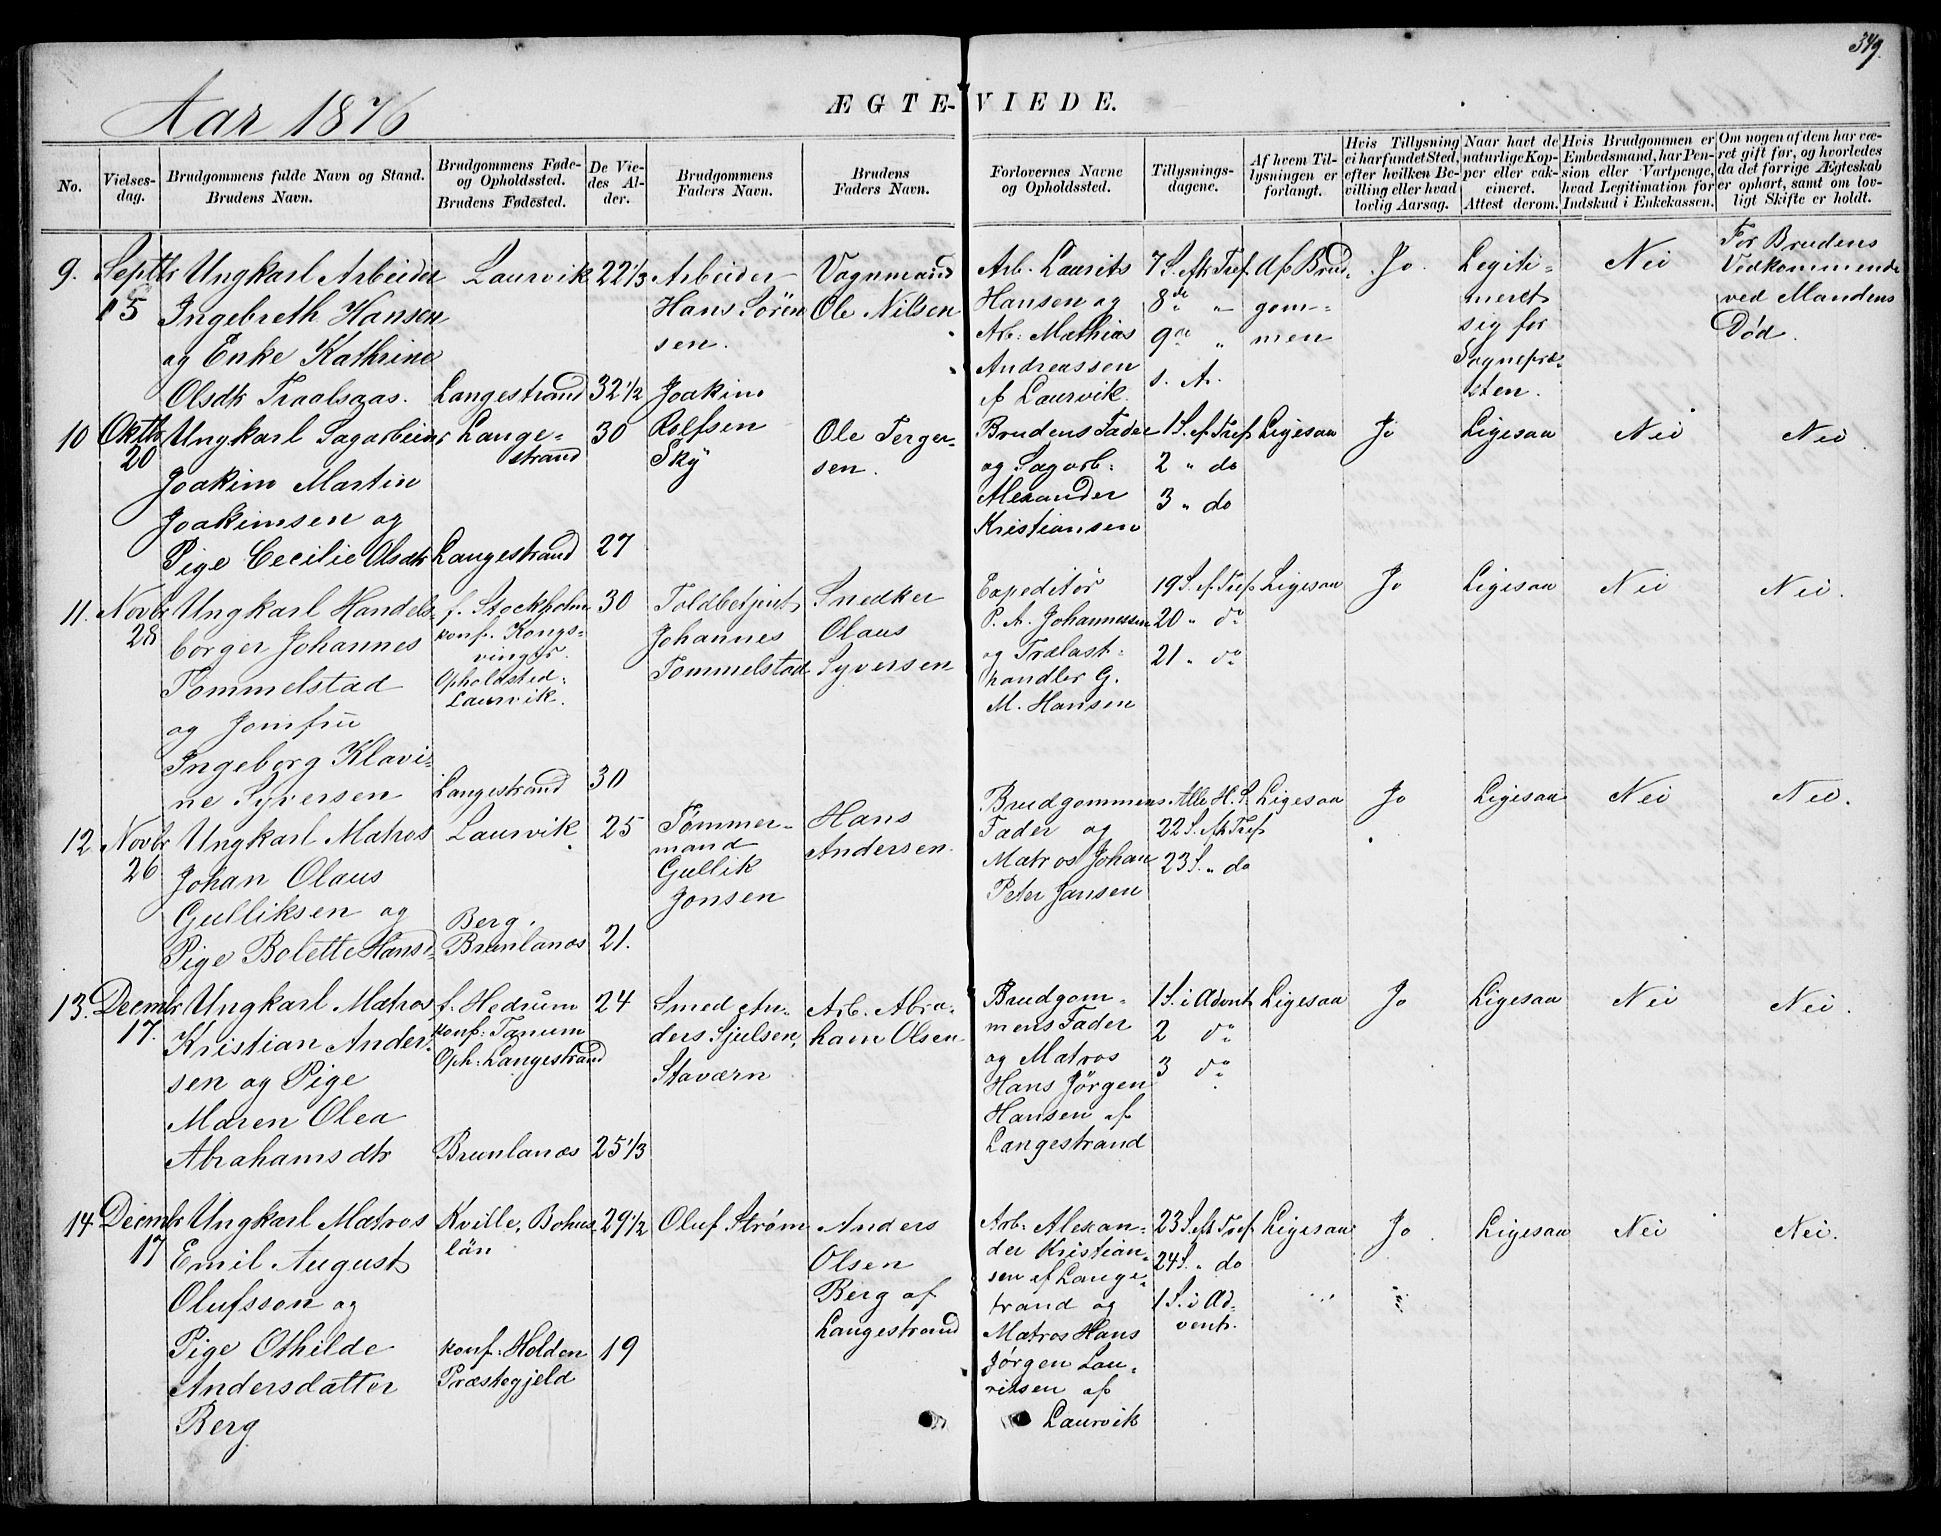 349.
Aar 1876
ÆGTE-VIEDE.
No.
Vielses-
dag.
Brudgommens fulde Navn og Stand.
Brudens Navn.
Brudgommens Føde-
og Opholdssted.
Brudens Fødested.
De Vie-
des Al-
der.
Brudgommens
Faders Navn.
Brudens
Faders Navn.
Forlovernes Navne
og Opholdssted.
Tillysnings-
dagene.
Af hvem Til-
lysningen er
forlangt.
Hvis Tillysning
ei har fundet Sted,
efter hvilken Be-
villing eller hvad
lovlig Aarsag.
Naar havt de
naturlige Kop-
per eller vak-
cineret.
Attest derom.
Hvis Brudgommen er
Embedsmand, har Pen-
sion eller Vartpenge,
hvad Legitimation for
Indskud i Enkekassen.
Om nogen af dem har væ-
ret gift før, og hvorledes
da det forrige Ægteskab
er ophørt, samt om lov-
ligt Skifte er holdt.
9.
Septbr
15
Ungkarl Arbeider
Ingebreth Hansen
og Enke Kathrine
Olsdtr Traalsaas.
Laurvik
Langestrand
22 1/3
32 1/2
Arbeider
Hans Sören
sen.
Vognmand
Ole Nilsen
Arb. Laurits
Hansen og
Arb. Mathias
Andreassen
af Laurvik.
7 S. eftr Tref
8de " "
9de "
s. A.
Af Brud-
gom-
men
Jo.
Legiti-
meret
sig for
Sognepræ-
sten.
Nei
For Brudens
Vedkommende
ved Mandens
Død.
10
Oktbr
20
Ungkarl Sagarbeider
Joakim Martin
Joakimsen og
Pige Cecilie Olsdtr
Lange-
strand
Langestrand
30
27
Joakim
Rolfsen
Sky
Ole Terger-
sen.
Brudens Fader
og Sagarb.
Alexander
Kristiansen
1 S. ef. Tref
2 " do
3 " do
Ligesaa
Jo
Ligesaa
Nei
Nei.
11.
Novbr
28
Ungkarl Handels-
borger Johannes
Tommelstad
og Jomfru
Ingeborg Klavi-
ne Syversen
f. Stockholm
konf. Kongs-
vinger.
Opholdsted
Laurvik.
Langestrand
30
30
Toldbetjent
Johannes
Tommelstad
Snedker
Olaus
Syversen
Expeditør
P. A. Johannessen
og Trælast-
handler G.
M. Hansen
19 S. ef Tref
20 " do
21 " do
Ligesaa
Jo
Ligesaa
Nei
Nei.
12
Novbr
26
Ungkarl Matros
Johan Olaus
Gulliksen og
Pige Bolette Hansd.
Laurvik
Berg.
Brunlanæs
25
21.
Tømmer-
mand
Gullik
Jonsen
Hans
Andersen.
Brudgommens
Fader og
Matros Johan
Peter Jansen
Alle H. S.
22 S. eftr Tref
23 S. " do
Ligesaa
Jo
Ligesaa
Nei
Nei.
13.
Decmbr
17.
Ungkarl Matros
Kristian Ander-
sen og Pige
Maren Olea
Abrahamsdtr
f. Hedrum
konf. Tanum
Oph. Langestrand
Brunlanæs
24
25 1/3
Smed An-
ders Sjulsen,
Staværn
Arb. Abra-
ham Olsen
Brudgom-
mens Fader
og Matros
Hans Jörgen
Hansen af
Langestrand
1 S. i Advent
2 do
3 do
Ligesaa
Jo
Ligesaa
Nei
Nei.
14
Decmbr
17
Ungkarl Matros
Emil August
Olufsson og
Pige Othilde
Andersdatter
Berg
Kville, Bohus-
län
konf. Holden
Præstegjeld
29 1/2
19
Oluf Strøm
Anders
Olsen
Berg af
Langestrand
Arb. Alexan-
der Kristian-
sen af Lange-
trand og
Matros Hans
Jörgen Lau-
ritsen af
Laurvik
23 S. eft Tref
24 S. " do
1 S. i Ad-
vent.
Ligesaa
Jo.
Ligesaa
Nei
Nei.